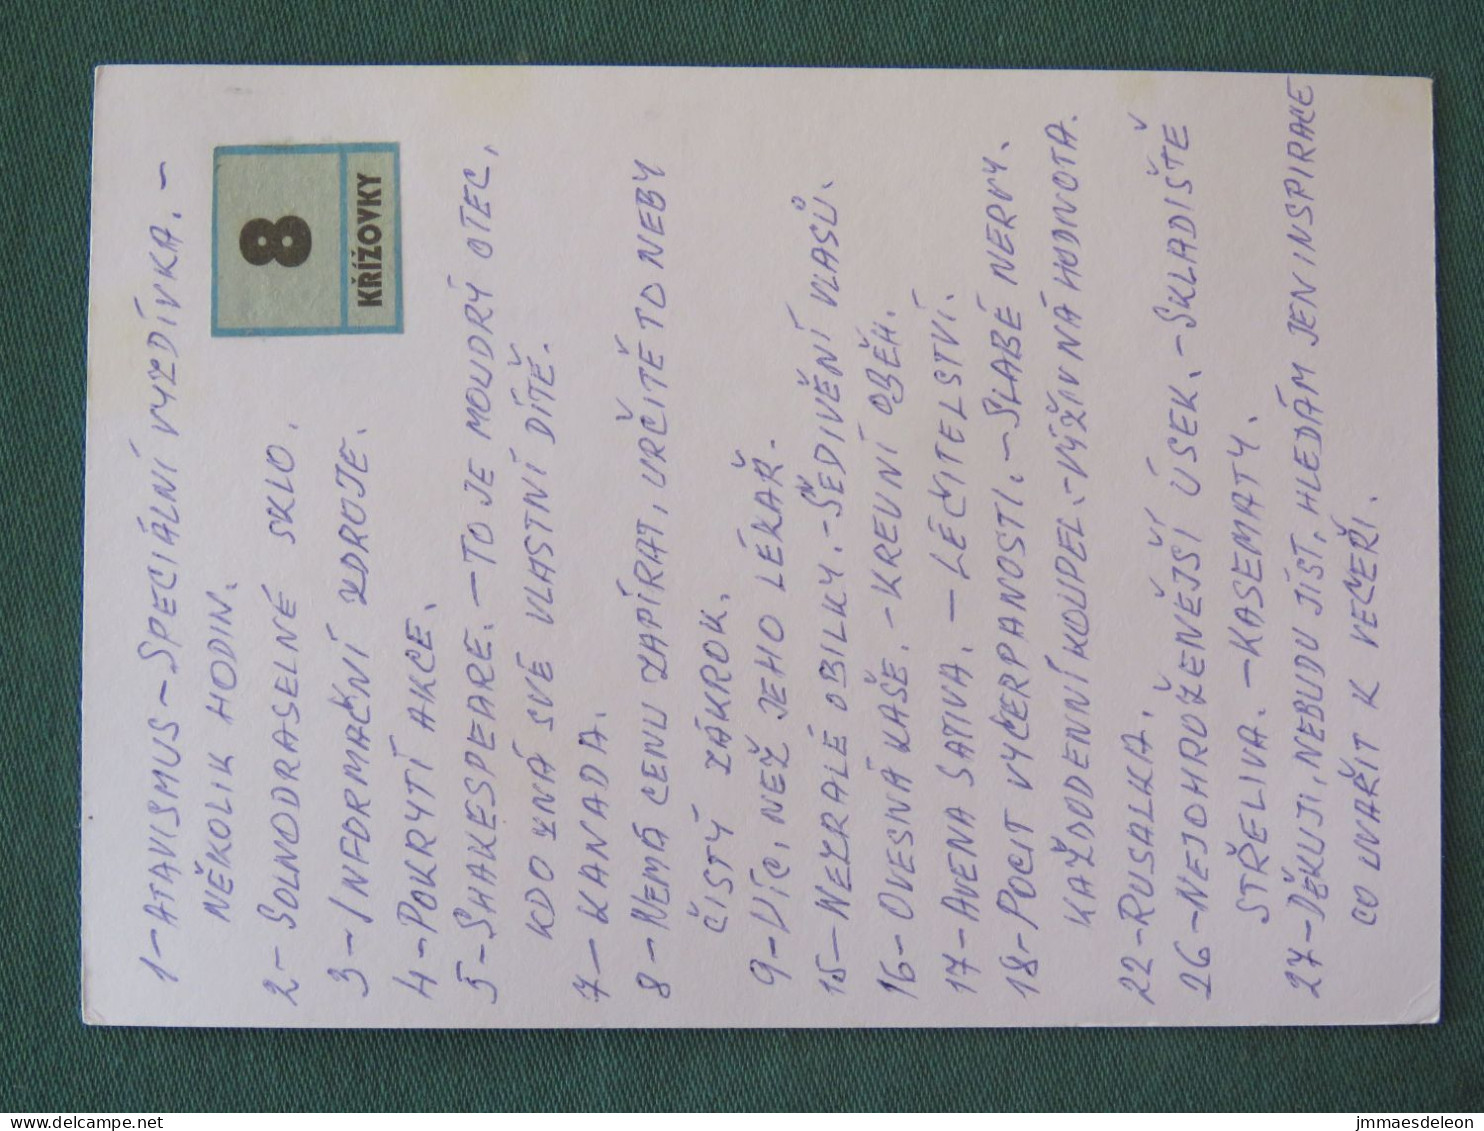 1-ATAVISMUS-SPECIÁLNÍ VYZDÍVKA.-
NĚKOLIK HODIN.
2-SOLNODRASELNÉ SKLO.
3-INFORMAČNÍ ZDROJE.
4-POKRYTÍ AKCE.
5-SHAKESPEARE.-TO JE MOUDRÝ OTEC,
KDO ZNÁ SVÉ VLASTNÍ DÍTĚ.
7-KANADA.
8-NEMÁ CENU ZAPÍRAT, URČITĚ TO NEBY
ČISTÝ ZÁKROK.
9-VÍC, NEŽ JEHO LÉKAŘ.
15-NEZRALÉ OBILKY.-ŠEDIVĚNÍ VLASŮ.
16-OVESNÁ KAŠE.-KREVNÍ OBĚH.
17-AVENA SATIVA.-LÉČITELSTVÍ.
18-POCIT VYČERPANOSTI.-SLABÉ NERVY.
KAŽDODENNÍ KOUPEL.-VÝŽIVNÁ HODNOTA.
22-RUSALKA.
26-NEJOHROŽENĚJŠÍ ÚSEK.-SKLADIŠTĚ
STŘELIVA.-KASEMATY.
27-DĚKUJI, NEBUDU JÍST, HLEDÁM JEN INSPIRACE
CO UVAŘIT K VEČEŘI.
8
KŘÍŽOVKY
www.delcampe.net
jmmaesdeleon